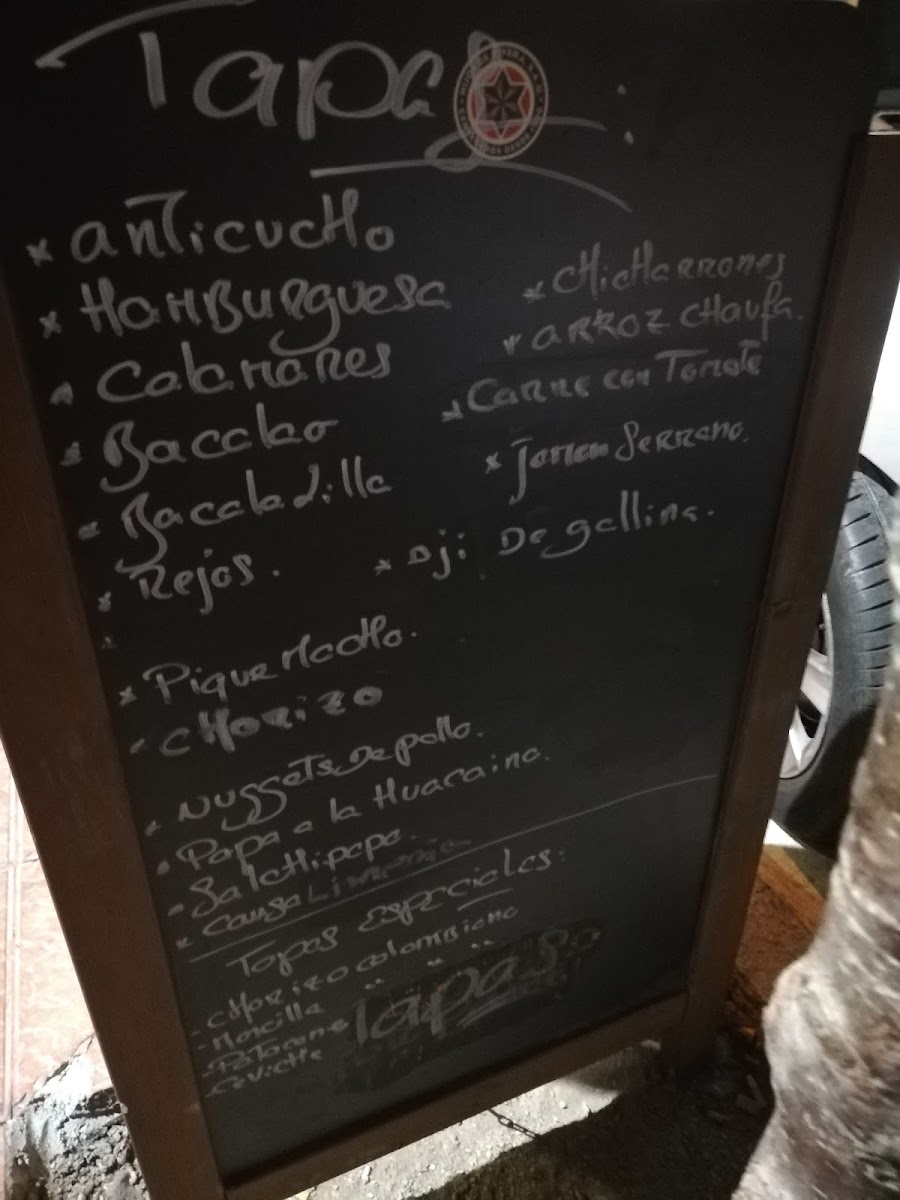 Tapas:
* Anticucho
* Hamburguesa
* Calamares
* Bacalao
* Bacaladilla
* Rejos.
* Chicharrones
* Arroz chaufa.
* Carne con Tomate
* Jamon Serrano.
* Aji De gallina.
* Pique Macho.
- Chorizo
- Nuggets De pollo.
- Papa a la Huacaina.
- Salchipapa.
* Causa Limeña
Tapas Especiales:
- Chorizo colombiano
- Morcilla " " "
- Patacone
- Ceviche
Tapas